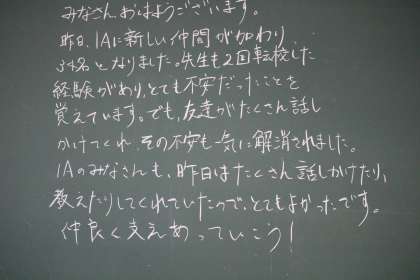 みなさん、おはようございます。
昨日、1Aに新しい仲間が加わり、
34名となりました。先生も2回転校した
経験があり、とても不安だったことを
覚えています。でも、友達がたくさん話し
かけてくれ、その不安も一気に解消されました。
1Aのみなさんも、昨日はたくさん話しかけたり、
教えたりしてくれていたので、とてもよかったです。
仲良く支えあっていこう!